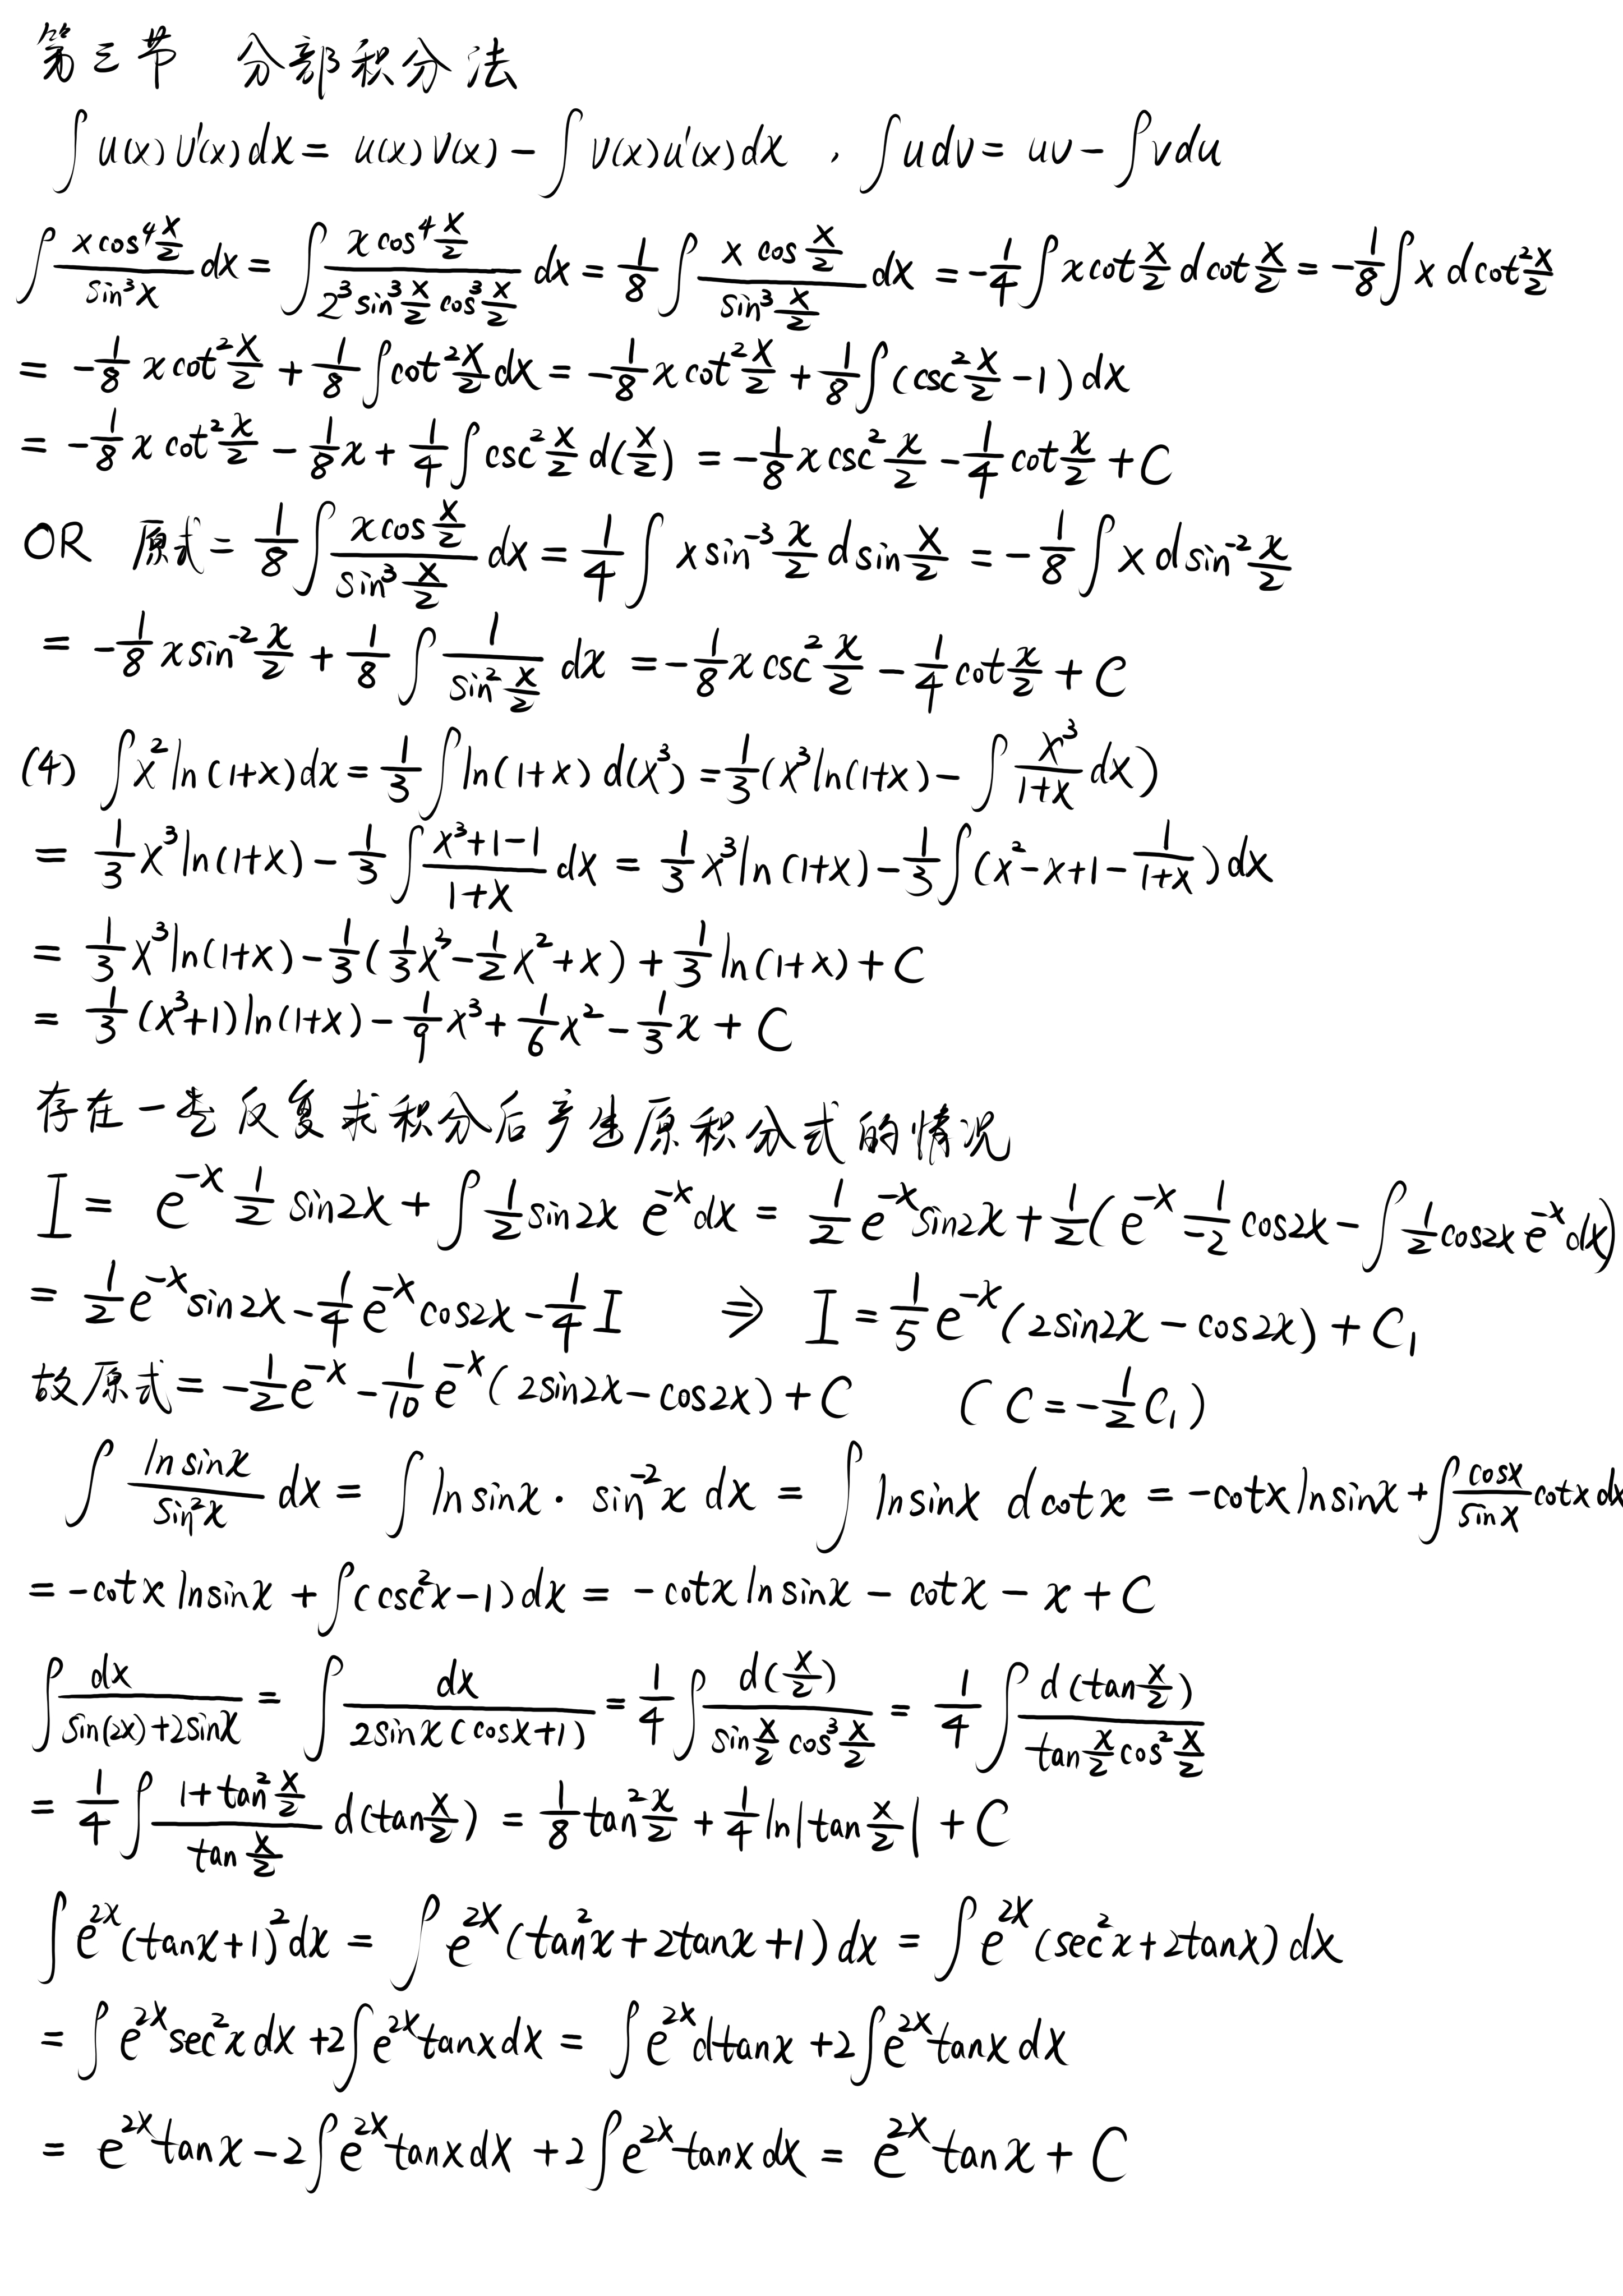 第三节 分部积分法
∫u(x)v'(x)dx = u(x)v(x) - ∫v(x)u'(x)dx , ∫udv = uv - ∫vdu
∫\frac{x cos^4\frac{x}{2}}{sin^3x}dx = ∫\frac{x cos^4\frac{x}{2}}{2^3sin^3\frac{x}{2}cos^3\frac{x}{2}}dx = \frac{1}{8}∫\frac{x cos\frac{x}{2}}{sin^3\frac{x}{2}}dx = -\frac{1}{4}∫xcot\frac{x}{2}dcot\frac{x}{2} = -\frac{1}{8}∫x dcot^2\frac{x}{2}
= -\frac{1}{8}xcot^2\frac{x}{2} + \frac{1}{8}∫cot^2\frac{x}{2}dx = -\frac{1}{8}xcot^2\frac{x}{2} + \frac{1}{8}∫(csc^2\frac{x}{2}-1)dx
= -\frac{1}{8}xcot^2\frac{x}{2} - \frac{1}{8}x + \frac{1}{4}∫csc^2\frac{x}{2}d(\frac{x}{2}) = -\frac{1}{8}xcsc^2\frac{x}{2} - \frac{1}{4}cot\frac{x}{2} + C
OR 原式 = \frac{1}{8}∫\frac{xcos\frac{x}{2}}{sin^3\frac{x}{2}}dx = \frac{1}{4}∫xsin^{-3}\frac{x}{2}dsin\frac{x}{2} = -\frac{1}{8}∫xdsin^{-2}\frac{x}{2}
= -\frac{1}{8}xsin^{-2}\frac{x}{2} + \frac{1}{8}∫\frac{1}{sin^2\frac{x}{2}}dx = -\frac{1}{8}xcsc^2\frac{x}{2} - \frac{1}{4}cot\frac{x}{2} + C
(4) ∫x^2ln(1+x)dx = \frac{1}{3}∫ln(1+x)d(x^3) = \frac{1}{3}(x^3ln(1+x) - ∫\frac{x^3}{1+x}dx)
= \frac{1}{3}x^3ln(1+x) - \frac{1}{3}∫\frac{x^3+1-1}{1+x}dx = \frac{1}{3}x^3ln(1+x) - \frac{1}{3}∫(x^2-x+1-\frac{1}{1+x})dx
= \frac{1}{3}x^3ln(1+x) - \frac{1}{3}(\frac{1}{3}x^3-\frac{1}{2}x^2+x) + \frac{1}{3}ln(1+x) + C
= \frac{1}{3}(x^3+1)ln(1+x) - \frac{1}{9}x^3 + \frac{1}{6}x^2 - \frac{1}{3}x + C
存在一类反复求积分后产生原积分式的情况
I = e^{-x}\frac{1}{2}sin2x + ∫\frac{1}{2}sin2x e^{-x}dx = \frac{1}{2}e^{-x}sin2x + \frac{1}{2}(e^{-x}\frac{1}{-2}cos2x - ∫\frac{1}{2}cos2x e^{-x}dx)
= \frac{1}{2}e^{-x}sin2x - \frac{1}{4}e^{-x}cos2x - \frac{1}{4}I ⇒ I = \frac{1}{5}e^{-x}(2sin2x - cos2x) + C_1
故原式 = -\frac{1}{2}e^{-x} - \frac{1}{10}e^{-x}(2sin2x - cos2x) + C (C = -\frac{1}{2}C_1)
∫\frac{lnsinx}{sin^2x}dx = ∫lnsinx · sin^{-2}x dx = ∫lnsinx dcotx = -cotxlnsinx + ∫\frac{cosx}{sinx}cotxdx
= -cotxlnsinx + ∫(csc^2x-1)dx = -cotxlnsinx - cotx - x + C
∫\frac{dx}{sin(2x)+2sinx} = ∫\frac{dx}{2sinx(cosx+1)} = \frac{1}{4}∫\frac{d(\frac{x}{2})}{sin\frac{x}{2}cos^3\frac{x}{2}} = \frac{1}{4}∫\frac{d(tan\frac{x}{2})}{tan\frac{x}{2}cos^2\frac{x}{2}}
= \frac{1}{4}∫\frac{1+tan^2\frac{x}{2}}{tan\frac{x}{2}}d(tan\frac{x}{2}) = \frac{1}{8}tan^2\frac{x}{2} + \frac{1}{4}ln|tan\frac{x}{2}| + C
∫e^{2x}(tanx+1)^2dx = ∫e^{2x}(tan^2x+2tanx+1)dx = ∫e^{2x}(sec^2x+2tanx)dx
= ∫e^{2x}sec^2xdx + 2∫e^{2x}tanxdx = ∫e^{2x}dtanx + 2∫e^{2x}tanxdx
= e^{2x}tanx - 2∫e^{2x}tanxdx + 2∫e^{2x}tanxdx = e^{2x}tanx + C